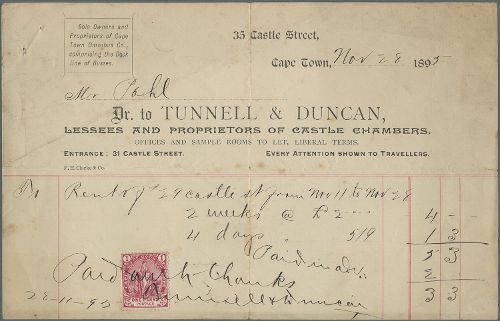 Sole Owners and
Proprietors of Cape
Town Omnibus Co.,
comprising the Dark
line of Busses.
35 Castle Street,
Cape Town, Nov 28 1895
Mr Pahl
Dr. to TUNNELL & DUNCAN,
LESSEES AND PROPRIETORS OF CASTLE CHAMBERS.
OFFICES AND SAMPLE ROOMS TO LET, LIBERAL TERMS.
ENTRANCE: 31 CASTLE STREET. EVERY ATTENTION SHOWN TO TRAVELLERS.
To Rent of 29 castle st from Nov 11 to Nov 28
2 weeks @ £2 4 - -
4 days 5/9 1 3
Paid 5 3
Paid with thanks 2
28-11-95 Tunnell & Duncan 3 3